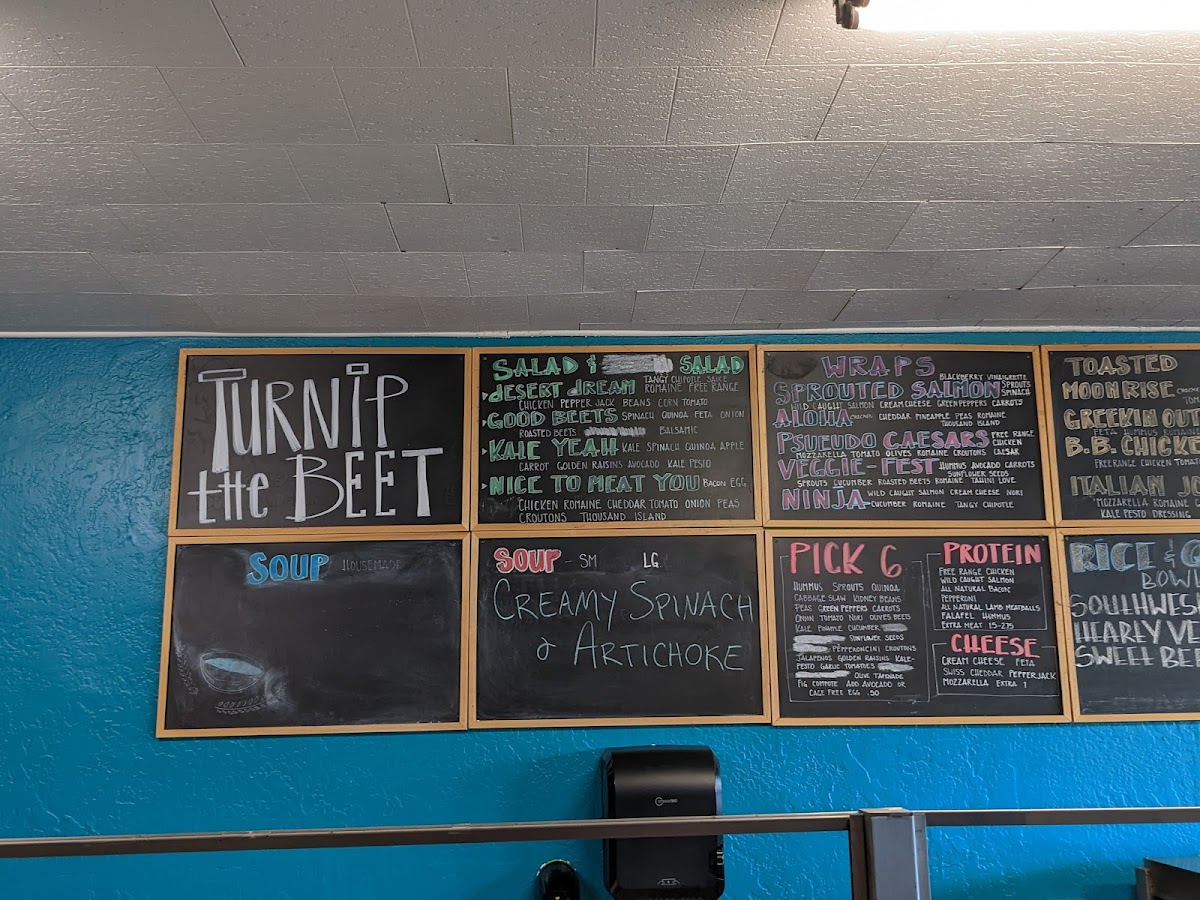 TURNIP
the BEET
SALAD & SALAD
DESERT DREAM TANGY CHIPOTLE SAUCE
ROMAINE FREE RANGE
CHICKEN PEPPER JACK BEANS CORN TOMATO
GOOD BEETS SPINACH QUINOA FETA ONION
ROASTED BEETS BALSAMIC
KALE YEAH KALE SPINACH QUINOA APPLE
CARROT GOLDEN RAISINS AVOCADO KALE PESTO
NICE TO MEAT YOU BACON EGG
CHICKEN ROMAINE CHEDDAR TOMATO ONION PEAS
CROUTONS THOUSAND ISLAND
WRAPS
BLACKBERRY VINAIGRETTE
SPROUTED SALMON SPROUTS
SPINACH
WILD CAUGHT SALMON CREAM CHEESE GREEN PEPPERS CARROTS
ALOHA CHICKEN CHEDDAR PINEAPPLE PEAS ROMAINE
THOUSAND ISLAND
PSUEUDO CAESARS FREE RANGE
CHICKEN
MOZZARELLA TOMATO OLIVES ROMAINE CROUTONS CAESAR
VEGGIE-FEST HUMMUS AVOCADO CARROTS
SUNFLOWER SEEDS
SPROUTS CUCUMBER ROASTED BEETS ROMAINE TAHINI LOVE
NINJA WILD CAUGHT SALMON CREAM CHEESE NORI
CUCUMBER ROMAINE TANGY CHIPOTLE
TOASTED
MOONRISE
GREEKIN OUT
FETA HUMMUS ROMAINE
B.B. CHICKE
FREE RANGE CHICKEN TOMATO
ITALIAN JO
MOZZARELLA ROMAINE
KALE PESTO DRESSING
SOUP HOUSEMADE
SOUP - SM LG
CREAMY SPINACH
& ARTICHOKE
PICK 6
HUMMUS SPROUTS QUINOA
CABBAGE SLAW KIDNEY BEANS
PEAS GREEN PEPPERS CARROTS
ONION TOMATO NORI OLIVES BEETS
KALE PINAPLE CUCUMBER
SUNFLOWER SEEDS
PEPPERONCINI CROUTONS
JALAPENOS GOLDEN RAISINS KALE-
PESTO GARLIC TOMATOES
OLIVE TAPENADE
FIG COMPOTE ADD AVOCADO OR
CAGE FREE EGG .50
PROTEIN
FREE RANGE CHICKEN
WILD CAUGHT SALMON
ALL NATURAL BACON
PEPPERONI
ALL NATURAL LAMB MEATBALLS
FALAFEL HUMMUS
EXTRA MEAT 1.5-2.75
CHEESE
CREAM CHEESE FETA
SWISS CHEDDAR PEPPERJACK
MOZZARELLA EXTRA 1
RICE & G
BOWL
SOUTHWES
HEARTY VE
SWEET BEE